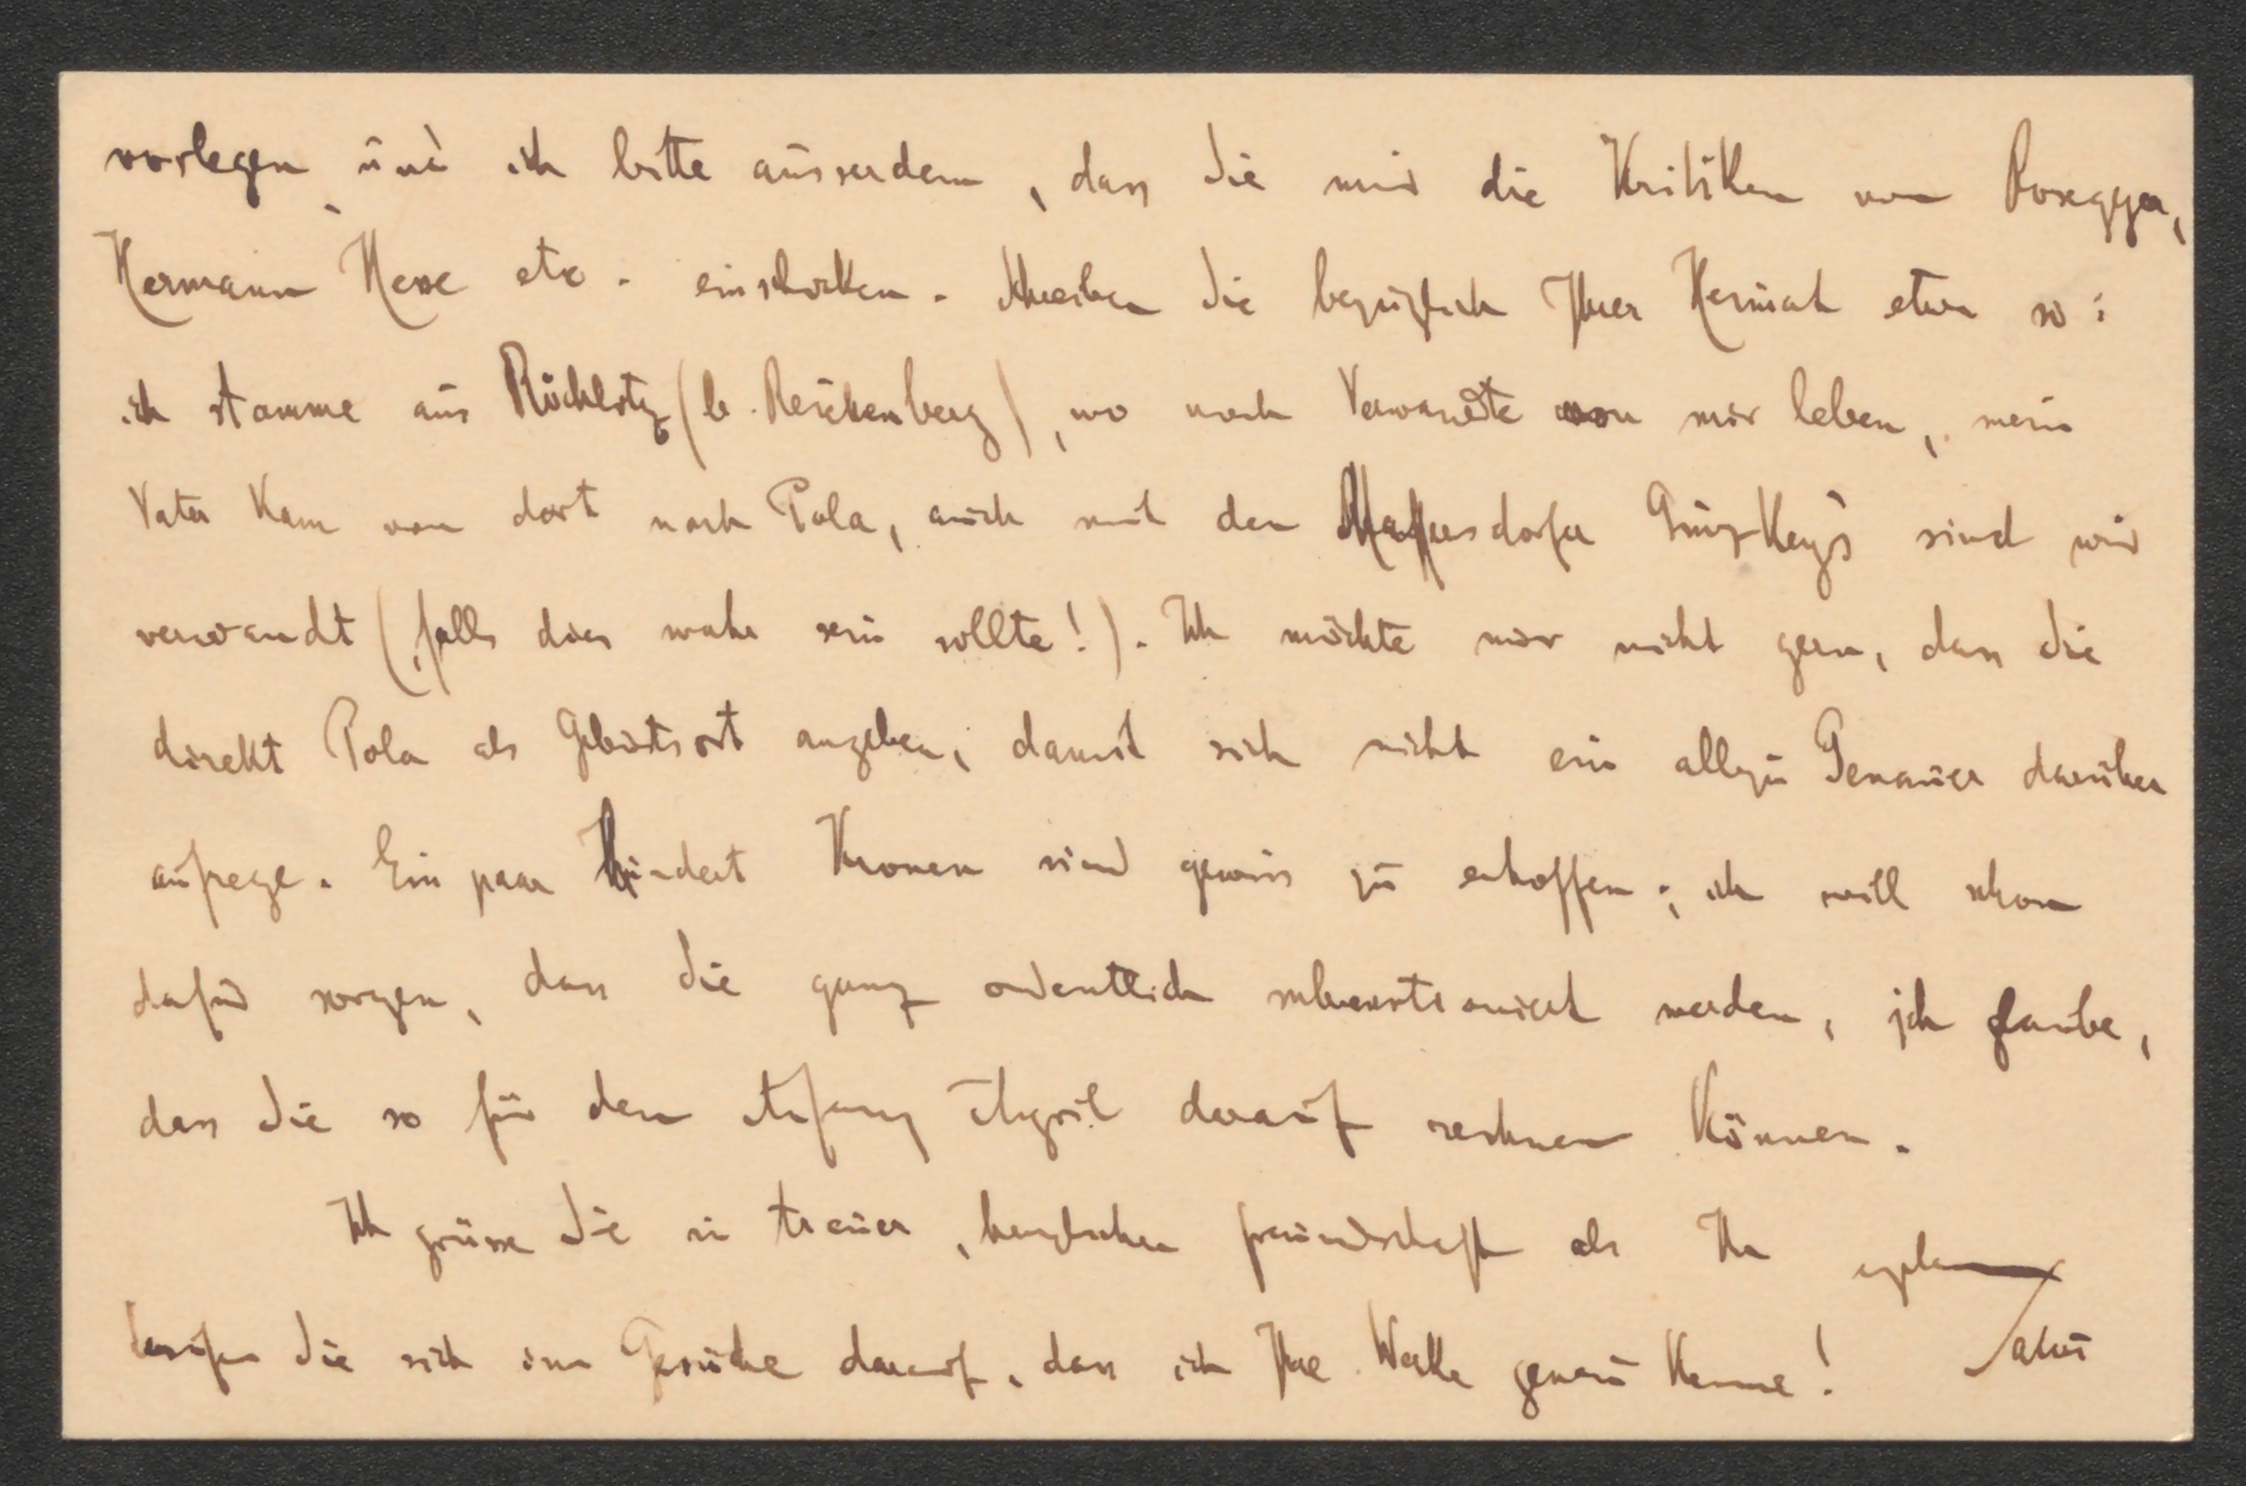 vorlegen und ich bitte ausserdem, dass Sie mir die Kritiken von Rosegger,
Hermann Hesse etc. einschicken. Schreiben Sie bezüglich Ihrer Heimat etwa so:
ich stamme aus Röchlitz (b. Reichenberg), wo noch Verwandte von mir leben, mein
Vater kam von dort nach Pola, auch mit den Maffersdorfer Ginzkeys sind wir
verwandt (, falls dies wahr sein sollte!). Ich möchte nur nicht gern, dass Sie
direkt Pola als Geburtsort angeben, damit sich nicht ein allzu Genauer darüber
aufrege. Ein paar Hundert Kronen sind gewiss zu erhoffen; ich will schon
dafür sorgen, dass Sie ganz ordentlich subventioniert werden, ich glaube,
dass Sie so für den Anfang April darauf rechnen können.
Ich grüsse Sie in treuer, herzlicher Freundschaft als Ihr
berufen Sie sich im Gesuche darauf, dass ich Ihre Werke genau kenne! Salus